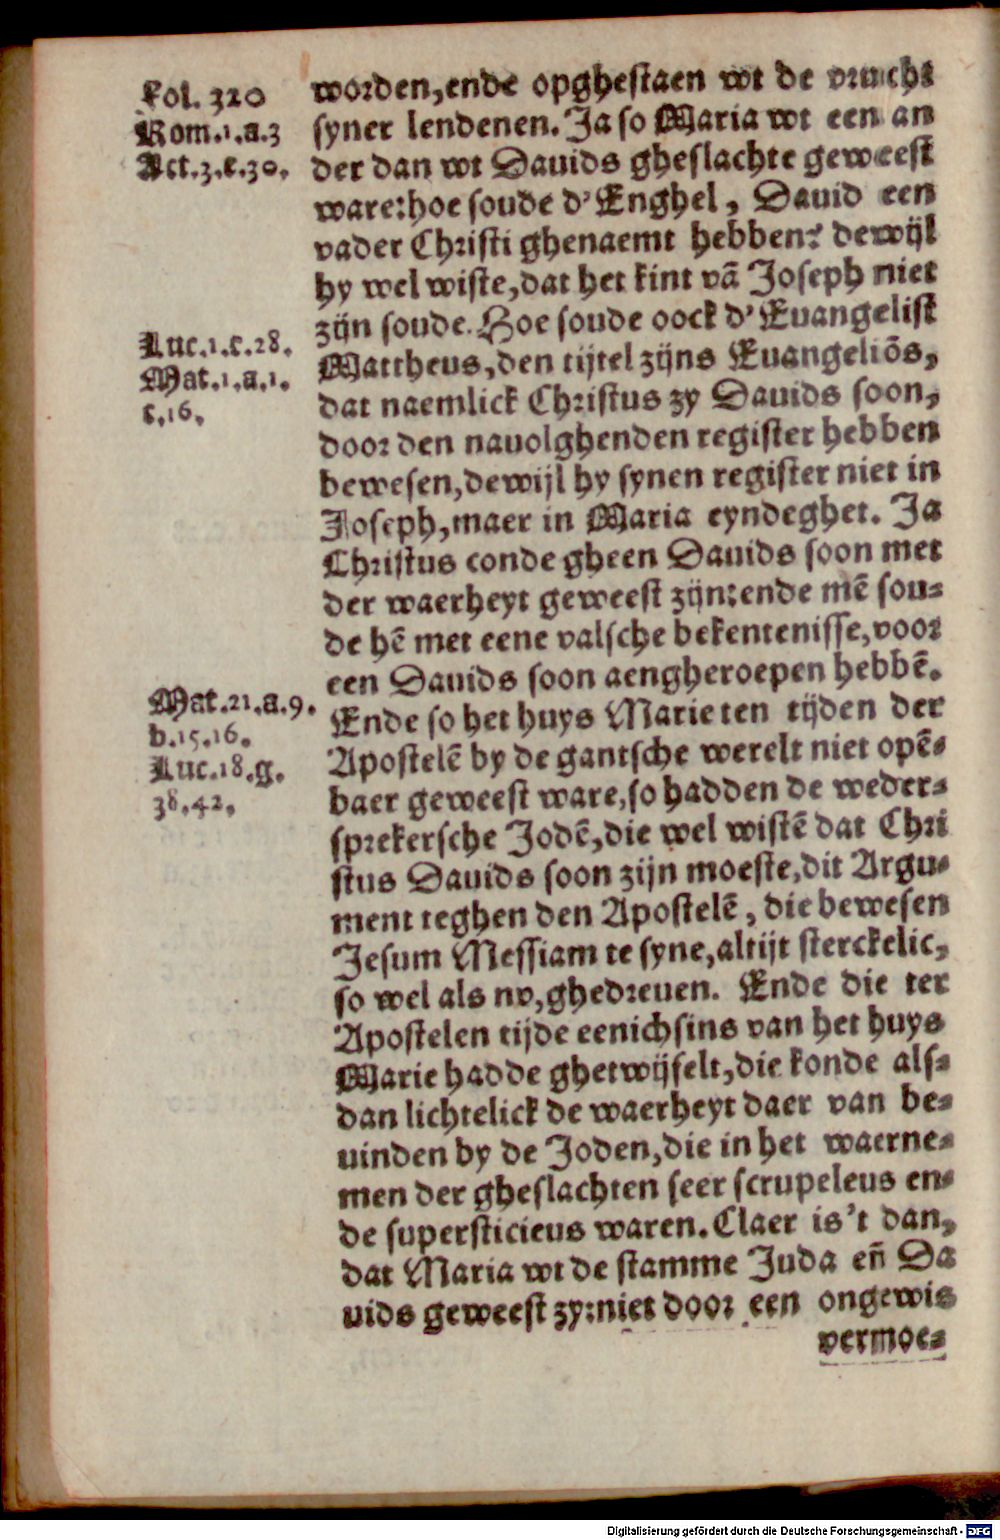 Fol. 320
Rom.1.a.3
Act.3.c.30.
Luc.1.c.28.
Mat.1.a.1.
c.16.
Mat.21.a.9.
b.15.16.
Luc.18.g.
38.42.
worden,ende opghestaen wt de vrucht
syner lendenen. Ja so Maria wt een an
der dan wt Dauids gheslachte geweest
ware: hoe soude d'Enghel, Dauid een
vader Christi ghenaemt hebben? dewijl
hy wel wiste,dat het kint vā Joseph niet
zijn soude. Hoe soude oock d'Euangelist
Mattheus,den tijtel zijns Euangeliōs,
dat naemlick Christus zy Dauids soon,
door den nauolghenden register hebben
bewesen,dewijl hy synen register niet in
Joseph,maer in Maria eyndeghet. Ja
Christus conde gheen Dauids soon met
der waerheyt geweest zijn: ende mē sou⸗
de hē met eene valsche bekentenisse,voor
een Dauids soon aengheroepen hebbē.
Ende so het huys Marie ten tijden der
Apostelē by de gantsche werelt niet opē⸗
baer geweest ware,so hadden de weder⸗
sprekersche Jodē,die wel wistē dat Chri
stus Dauids soon zijn moeste,dit Argu⸗
ment teghen den Apostelē, die bewesen
Jesum Messiam te syne,altijt sterckelic,
so wel als nv,ghedreuen. Ende die ter
Apostelen tijde eenichsins van het huys
Marie hadde ghetwijfelt,die konde als⸗
dan lichtelick de waerheyt daer van be⸗
uinden by de Joden,die in het waerne⸗
men der gheslachten seer scrupeleus en⸗
de supersticieus waren. Claer is't dan,
dat Maria wt de stamme Juda eñ Da
uids geweest zy: niet door een ongewis
vermoe⸗
Digitalisierung gefördert durch die Deutsche Forschungsgemeinschaft - DFG